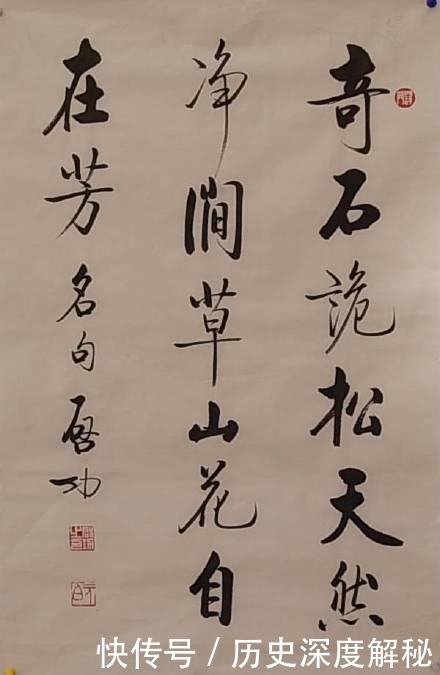 奇石詭松天然
净澗草山花自
在芳 名句 啓功
快传号 / 历史深度解秘